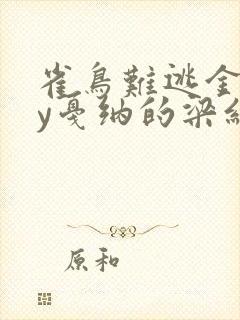 雀鳥難逃金
y戛纳的梁
原和